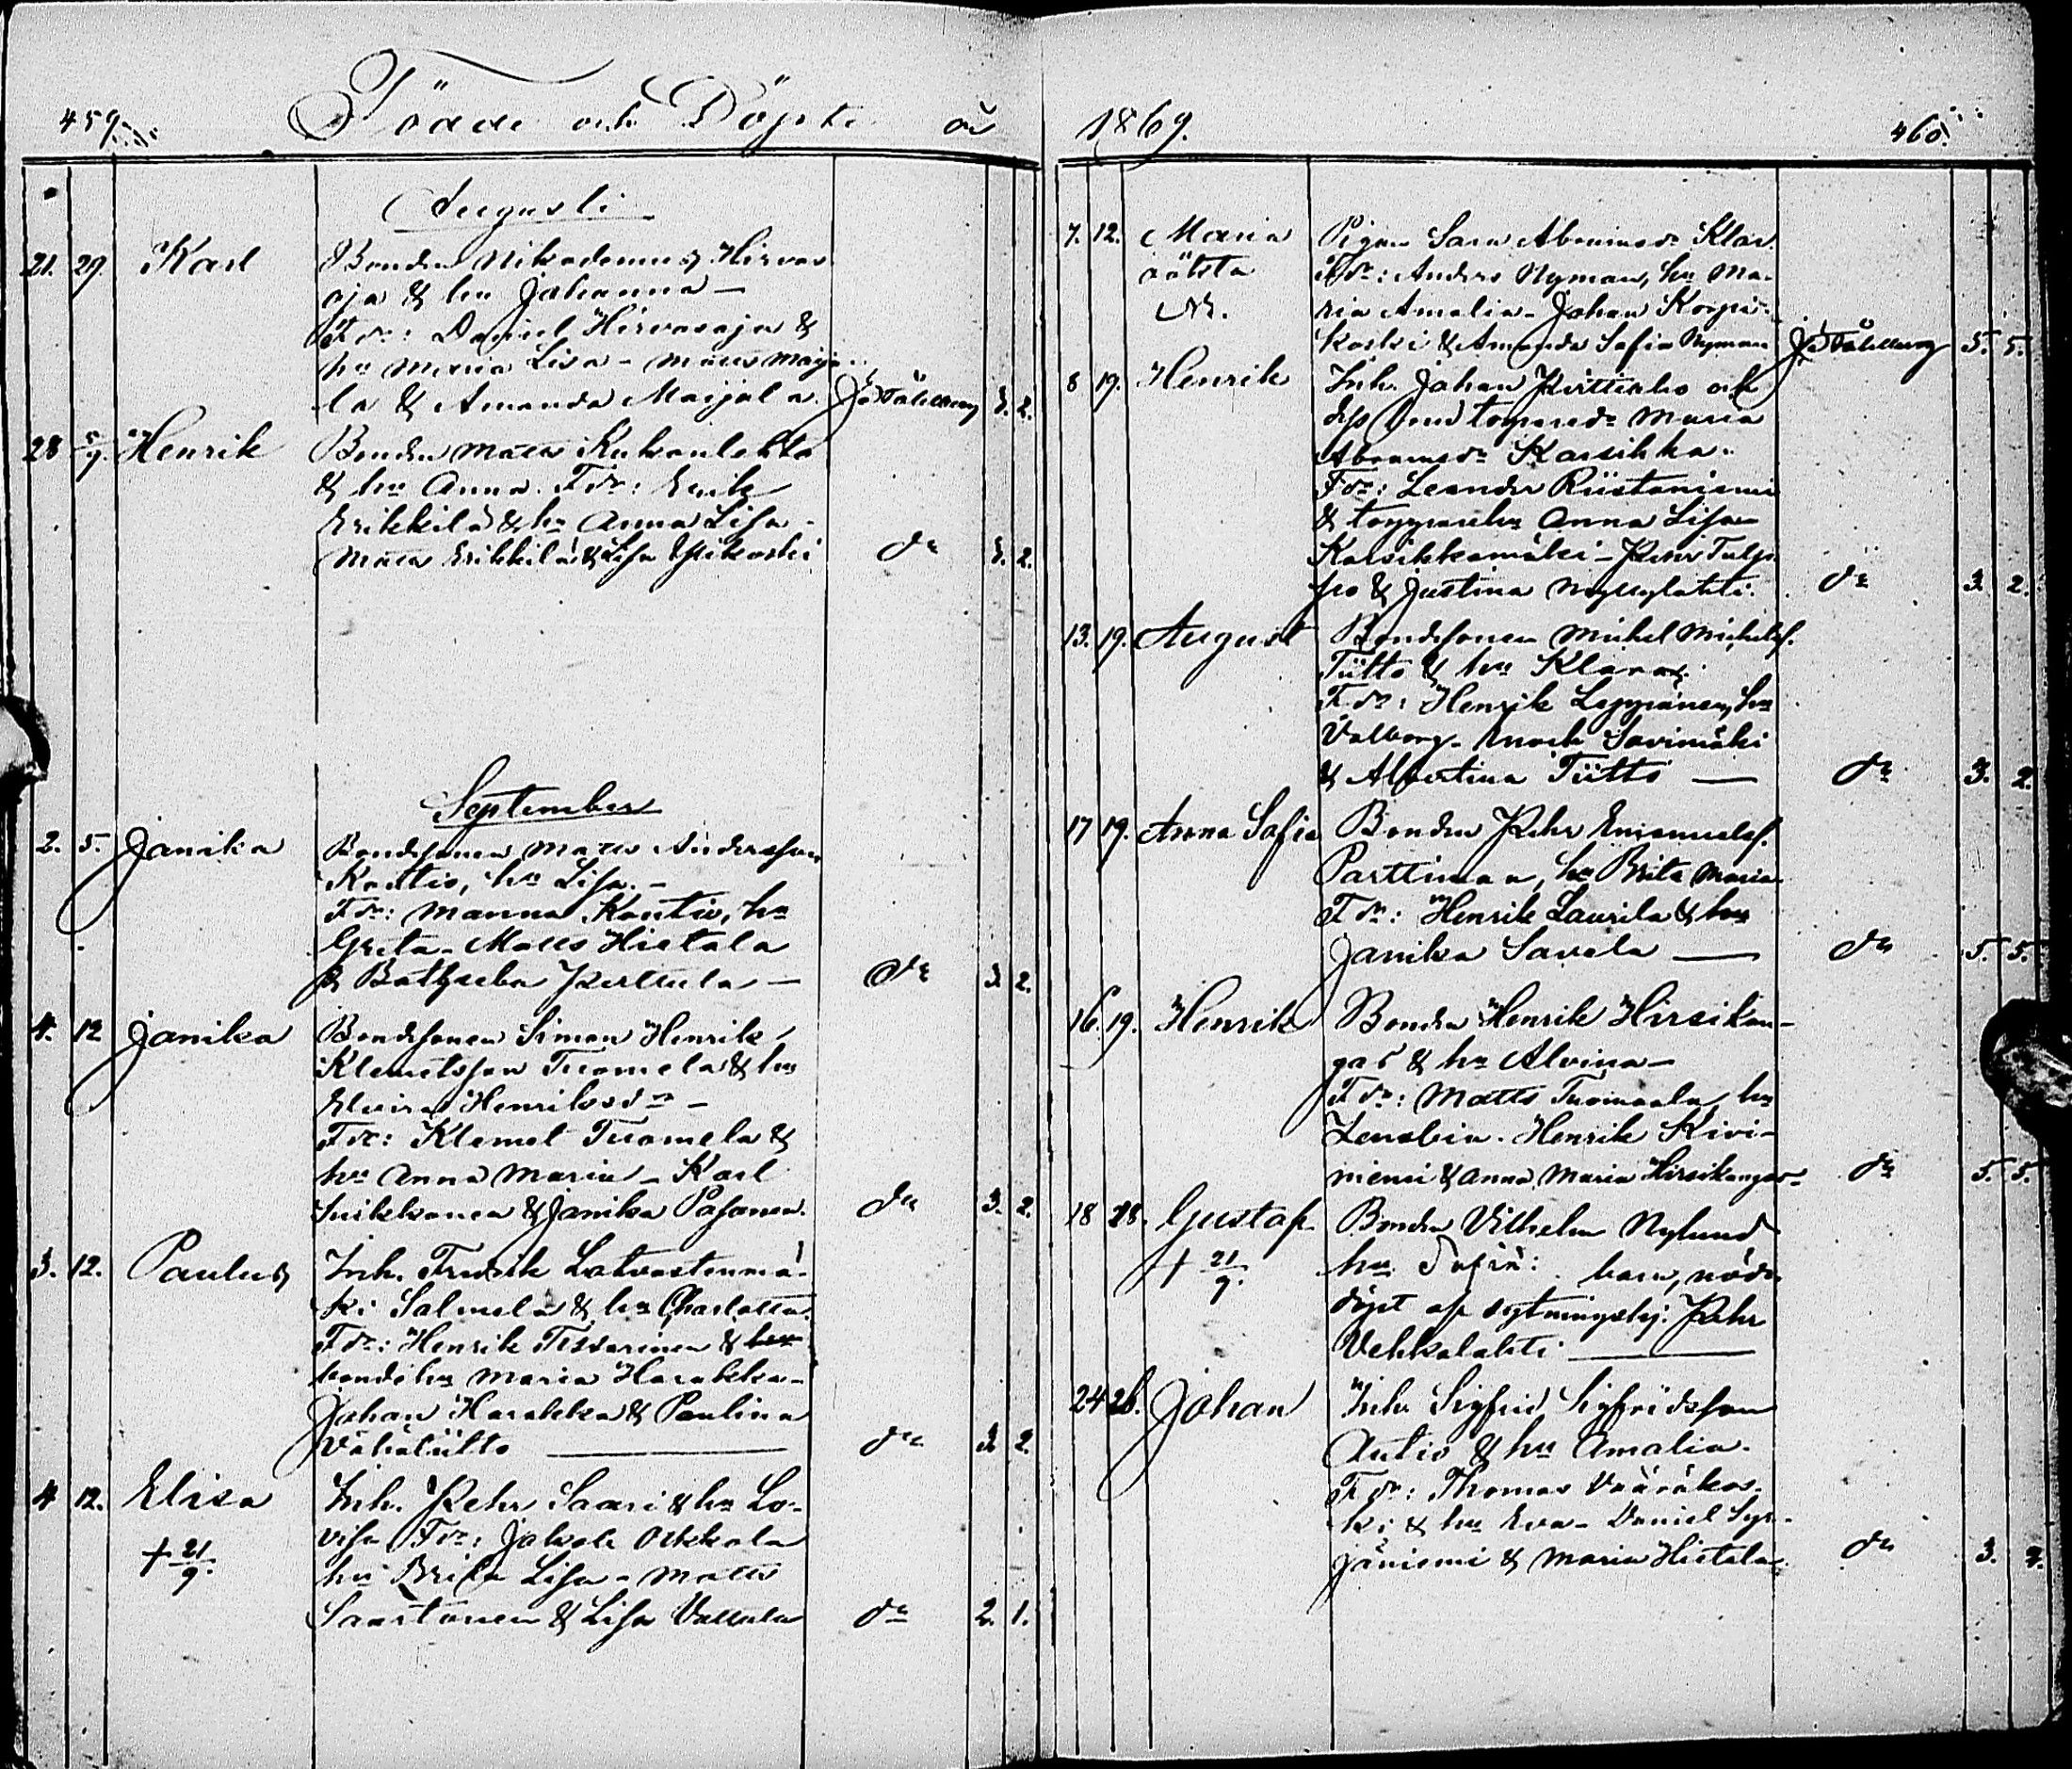 459.
Födde och Döpte år
Augusti
21. 29. Karl Bonden Nikodemus Hirvas
oja & hu Johanna —
Fdr: Daniel Hirvasoja &
hu Maria Lisa - Matts Maija
la & Amanda Maijala. 3. 2.
28 5/9. Henrik Bonden Matts Kuhonlehto
& hu Anna. Fdr: Erik
Erikkilä & hu Anna Lisa -
Matts Erikkilä & Lisa do 3. 2.
September
2. 5. Janika Bondesonen Matts Andersson
Kontio, hu Lisa. -
Fdr: Manna Kontio, hu
Greta - Matts Hietala
& Bathseba Perttula — do 3. 2.
4. 12 Janika Bondsonen Simon Henrik
Klemetsson Tuomela & hu
Elvira Henriksdr -
Fdr: Klemet Tuomela &
hu Anna Maria - Karl
Suikkanen & Janika Pasanen. do 3. 2.
3. 12. Paulus Inh. Fredrik Latvastenmä-
ki Salmela & hu Charlotta.
Fdr: Henrik Tissarinen & hu
bondehu Maria Harakka -
Johan Harakka & Paulina
Vähätiitto — do 3. 2.
4 12. Elisa Inh. Pehr Saari & hu Lo-
visa Fdr: Jakob Okkola
+ 21/9. hu Brita Lisa - Matts
Saartonen & Lisa do 2. 1.
1869.
460.
7. 12. Maria Pigan Sara Abramsdr Klar
oäkta Fdr: Anders Nyman, hu Ma-
No. ria Amalia - Johan Korpi-
koski & Amanda Sofia Nyman 5. 5.
8 19. Henrik Inh. Johan Perttiaho och
dess Maria
Abramsdr Karsikka.
Fdr: Leander Riistaniemi
& Anna Lisa
Karsikkamäki - Pehr Tulp-
po & Justina Myllylahti. do 3. 2.
13. 19. August Bondesonen Mickel Mickelss.
Tiitto & hu Klara.
Fdr: Henrik Leppänen, hu
Valborg - Enock Savimäki
& Albertina Tiitto — do 3. 2.
17 19. Anna Sofia Bonden Pehr Emanuelss.
Parttimaa, hu Brita Maria
Fdr: Henrik Laurila & hu
Janika Savela — do 5. 5.
16. 19. Henrik Bonden Henrik Hirsikan-
gas & hu Alvina -
Fdr: Matts Tuomaala, hu
Zenobia. Henrik Kivi-
niemi & Anna Maria Hirsikangas - do 5. 5.
18 28. Gustaf Bonden Vilhelm Nylund
+ 21/9. hu Sofia: barn, nöd-
döpt af Pehr
Vehkalahti —
24 26. Johan Inh. Sigfrid Sigfridsson
Autio & hu Amalia.
Fdr: Thomas Vääräkos-
ki & hu Eva - Daniel Syr-
jäniemi & Maria Hietala. do 3. 2.